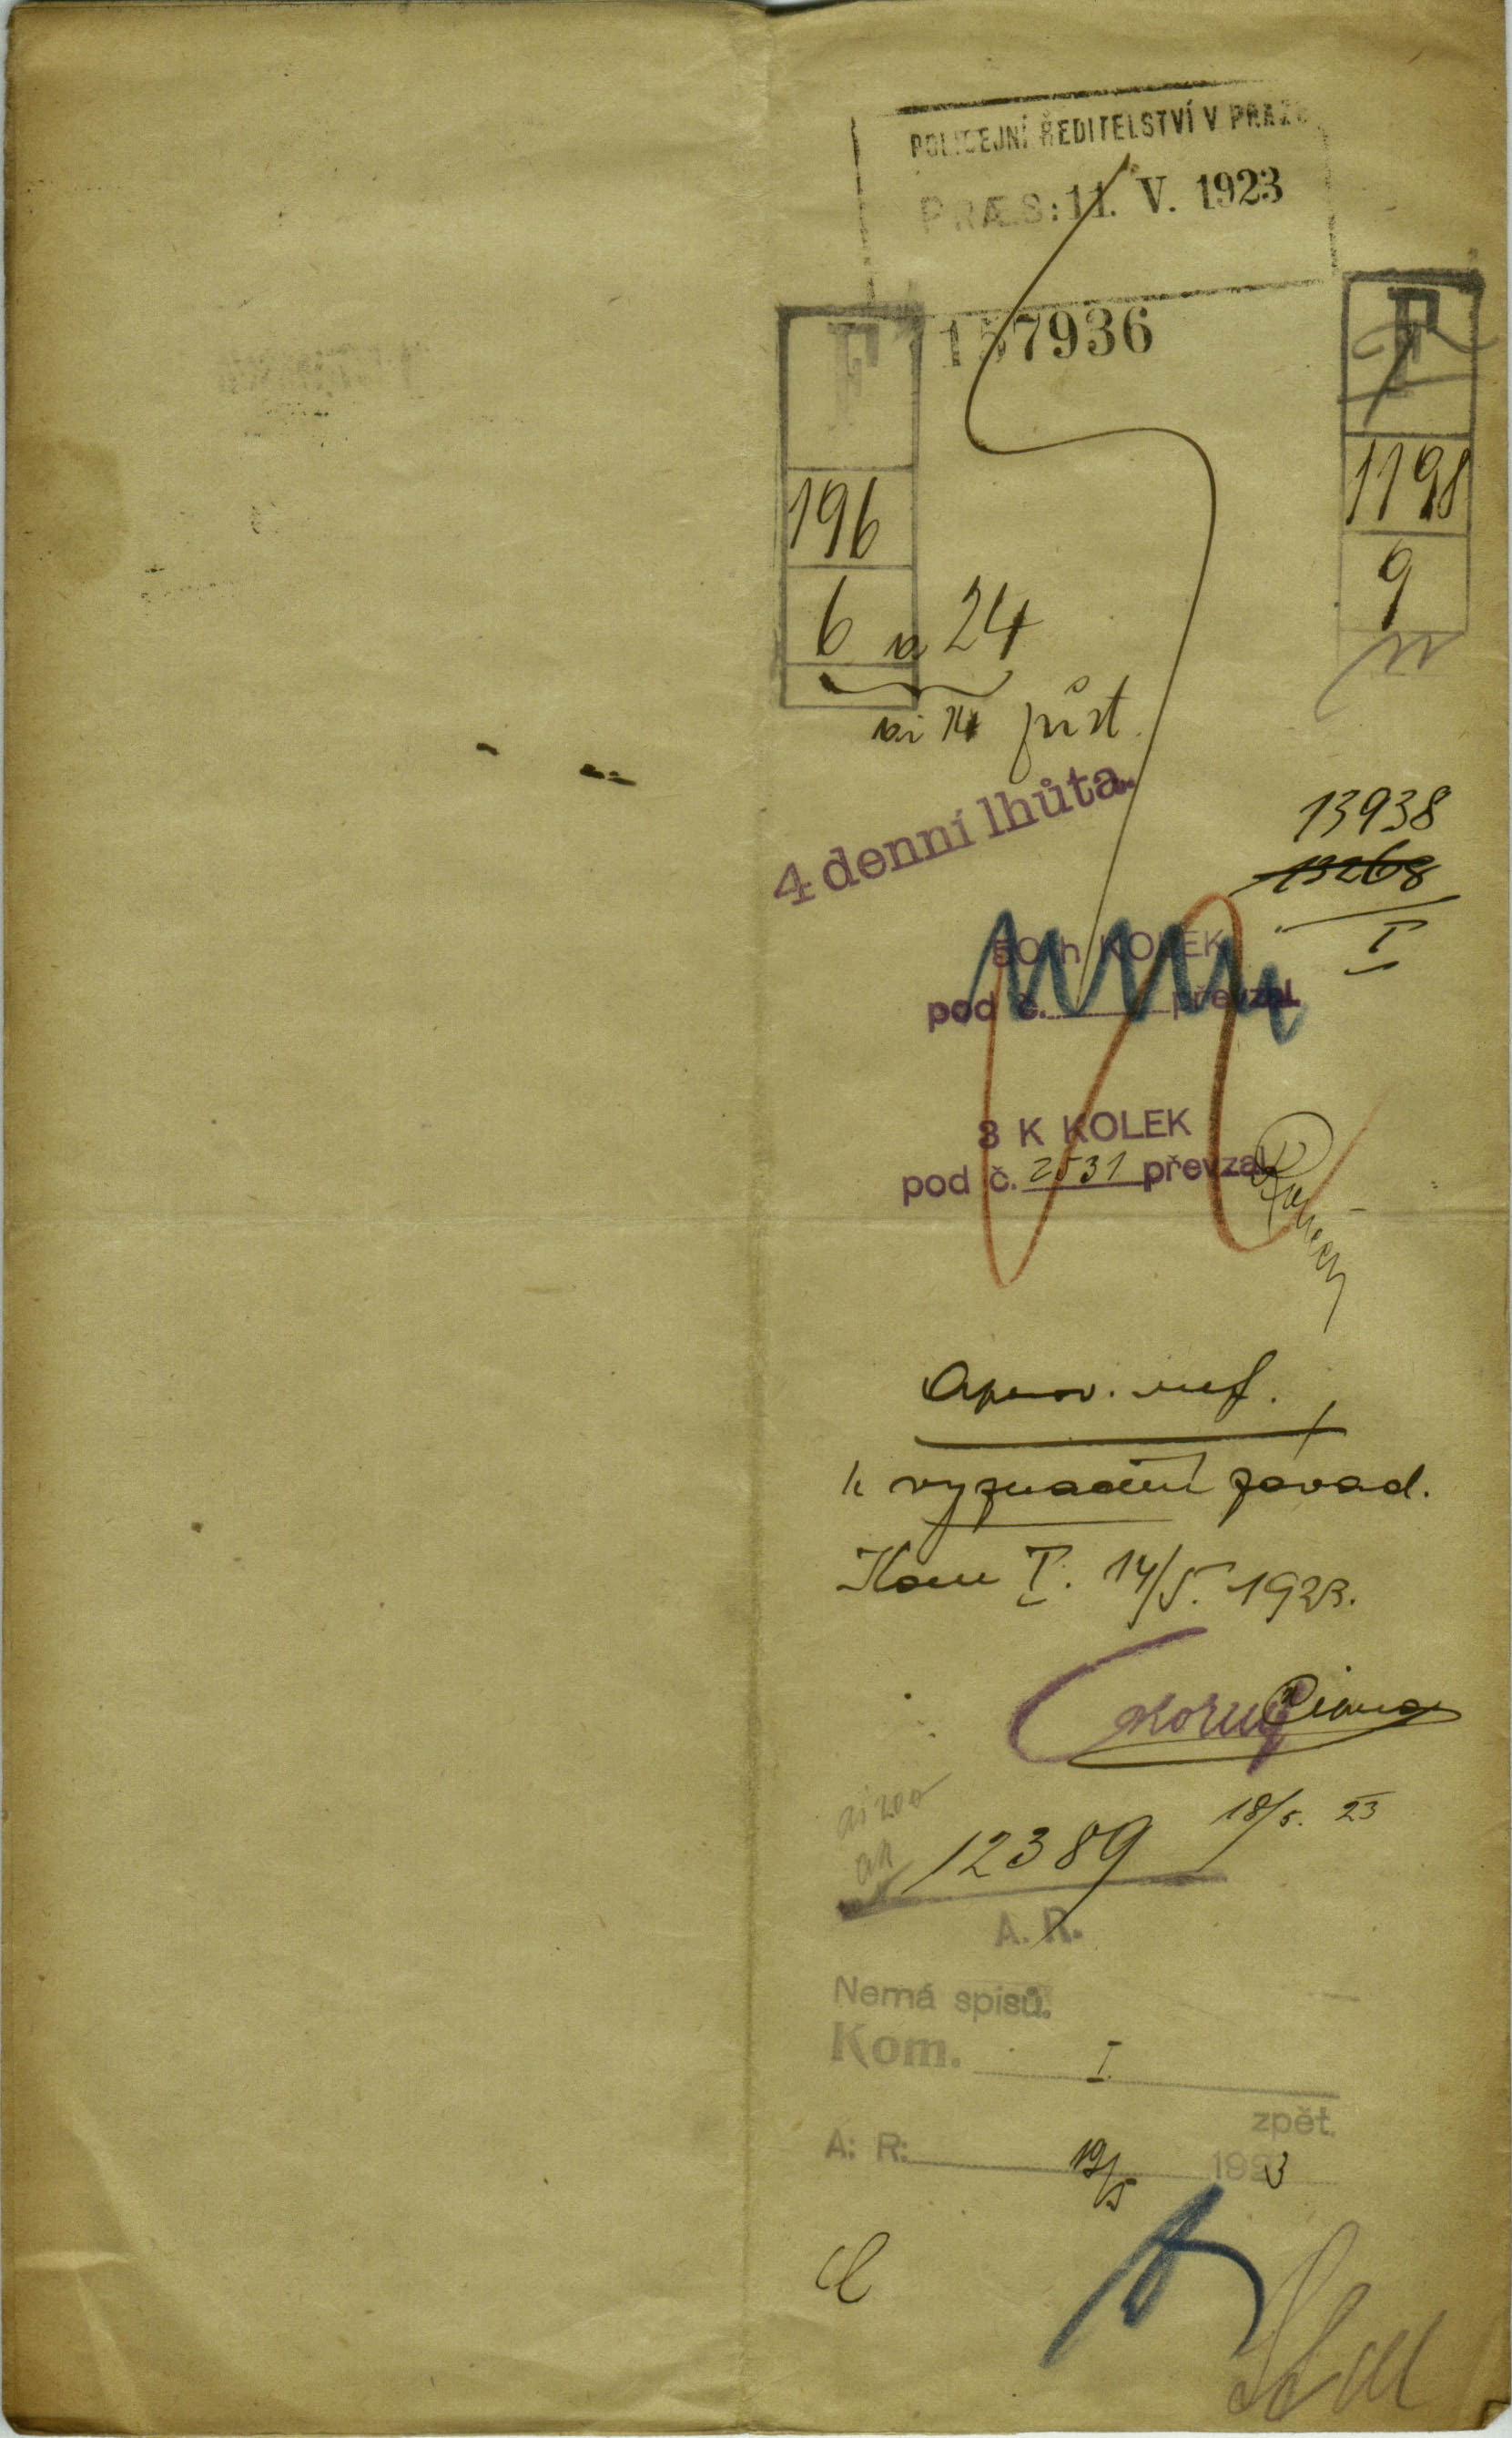 POLICEJNÍ ŘEDITELSTVÍ V PRAZE
PRÆS: 11. V. 1923
157936
F
196
6 a 24
F
1198
9
4 denní lhůta.
13938
13268
I
50 h KOLEK
pod č. převzal
3 K KOLEK
pod č. 2531 převzal
k vyznačení závad.
Kom I. 14/5. 1923.
18/5. 23
12389
A. R.
Nemá spisů.
Kom. I.
zpět.
A: R: 19/5 1923